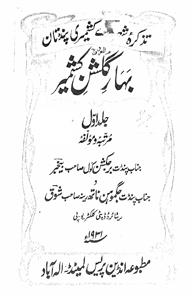 تذکرۂ شعرائے کشمیری پنڈتان
المعروف بہ
بہارِ گلشنِ کشمیر
جلد اوّل
مرتبہ و مؤلفہ
جناب پنڈت برجکشن کول صاحب بیخبر
و
جناب پنڈت جگموہن ناتھ رینہ صاحب شوق
ریٹائرڈ ڈپٹی کلکٹر
۱۹۳۱ء
مطبوعہ انڈین پریس لمیٹڈ۔ الہ آباد